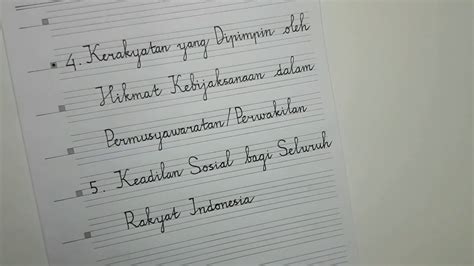 4. Kerakyatan yang Dipimpin oleh
Hikmat Kebijaksanaan dalam
Permusyawaratan/Perwakilan
5. Keadilan Sosial bagi Seluruh
Rakyat Indonesia